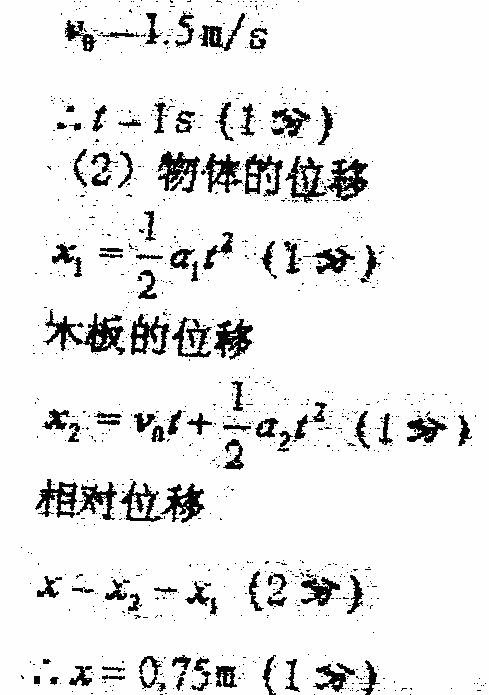 v₀=1.5m/s
∴t=1s (1分)
(2) 物体的位移
x₁=\frac{1}{2}a₁t² (1分)
木板的位移
x₂=v₀t+\frac{1}{2}a₂t² (1分)
相对位移
x=x₂-x₁ (2分)
∴x=0.75m (1分)